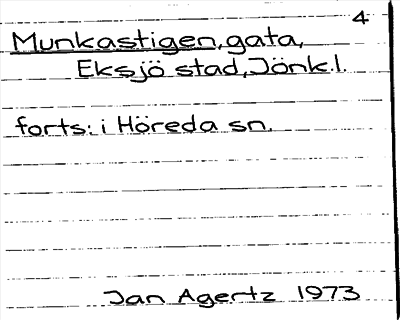 4
Munkastigen, gata,
Eksjö stad, Jönk. l.
forts: i Höreda sn.
Jan Agertz 1973